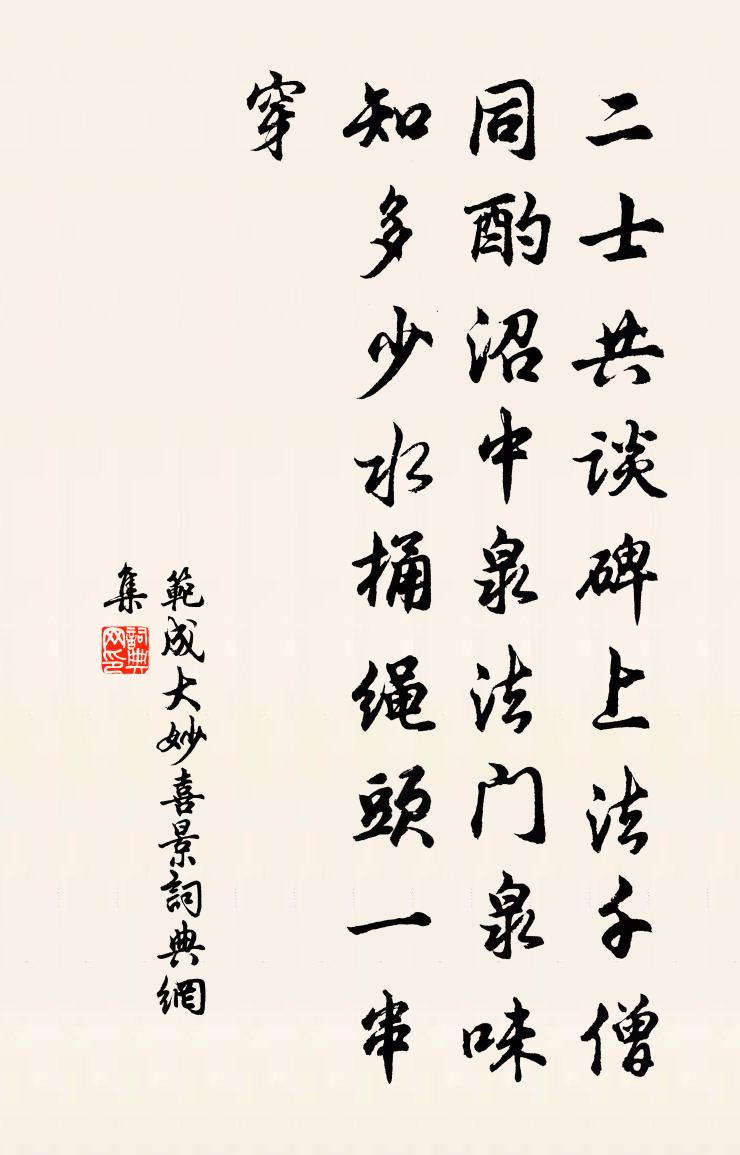 二士共谈碑上法千僧
同酌沼中泉法门泉味
知多少水桶绳頭一串
穿
範成大妙喜景詞典網
集
詞典
网印